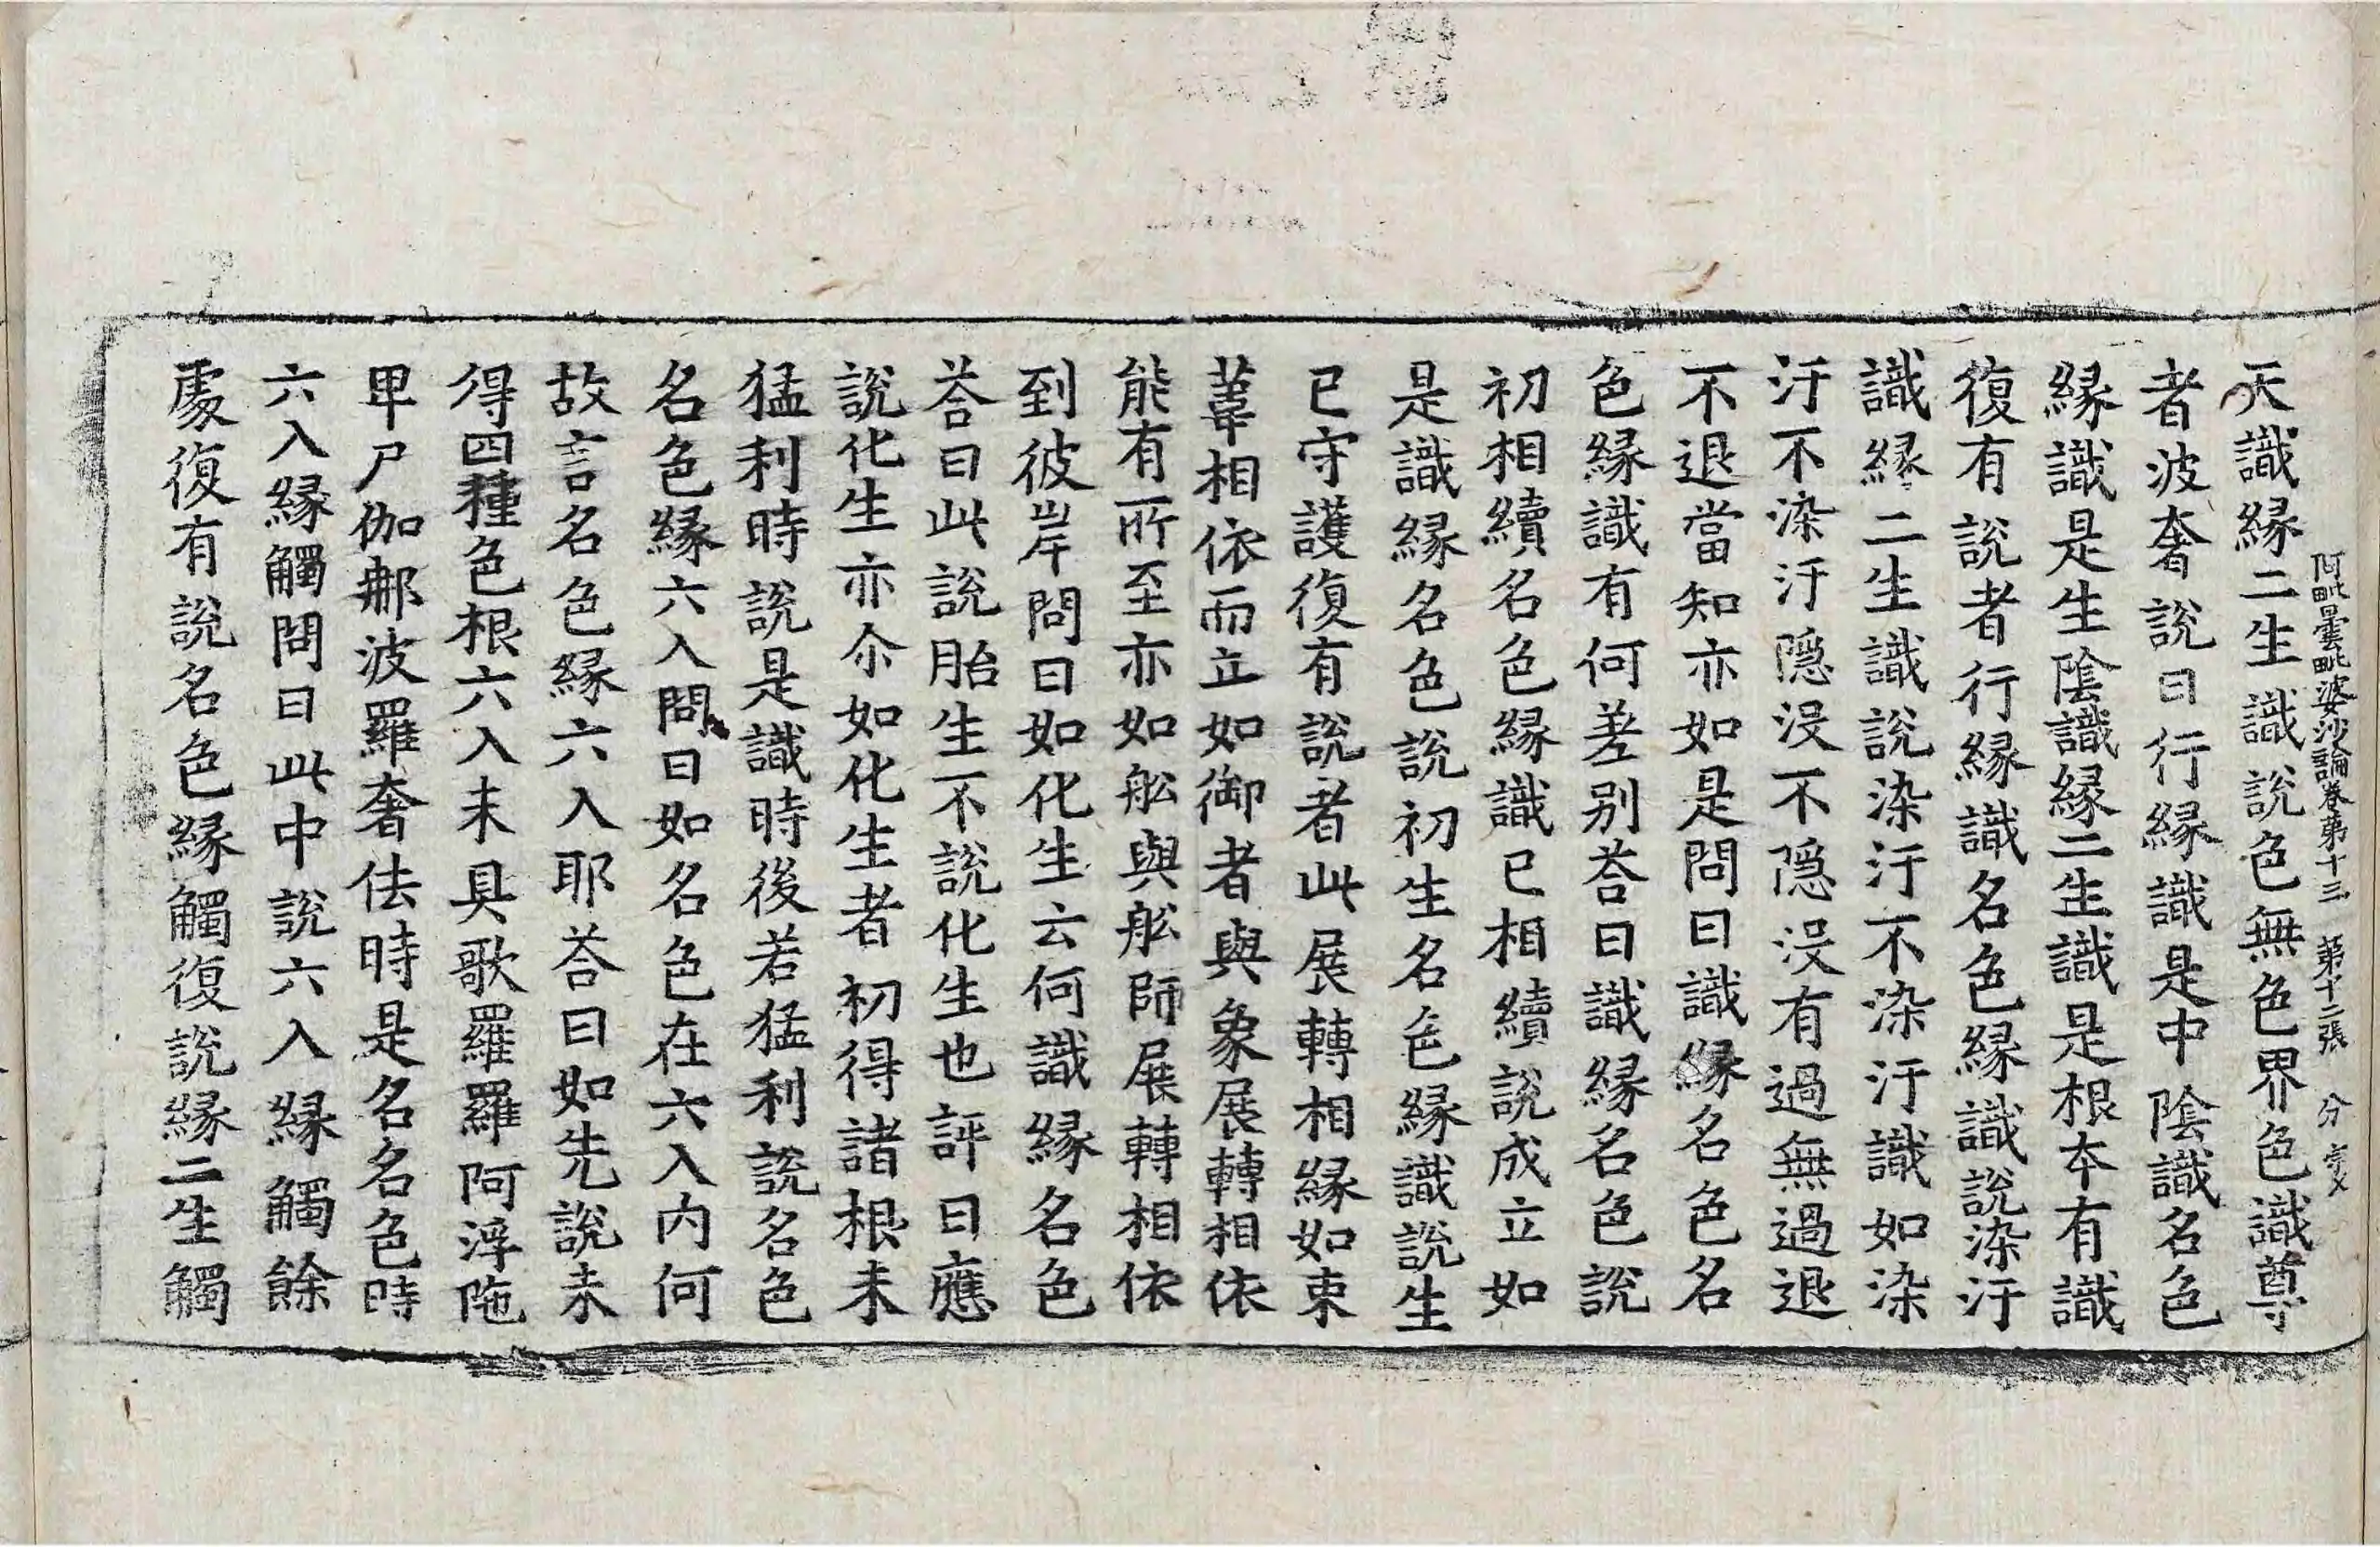 阿毗曇毗婆沙論卷第十三 第十二張 分 字号
天識縁二生識說色無色界色識尊
者波奢說曰行縁識是中陰識名色
縁識是生陰識縁二生識是根本有識
復有說者行縁識名色縁識說染汙
識縁二生識說染汙不染汙識如染
汙不染汙隱没不隱没有過無過退
不退當知亦如是問曰識縁名色名
色縁識有何差别荅曰識縁名色說
初相續名色縁識已相續說成立如
是識縁名色說初生名色縁識說生
已守護復有說者此展轉相縁如束
葦相依而立如御者與象展轉相依
能有所至亦如舩與舩師展轉相依
到彼岸問曰如化生云何識縁名色
荅曰此說胎生不說化生也評曰應
說化生亦尒如化生者初得諸根未
猛利時說是識時後若猛利說名色
名色縁六入問曰如名色在六入内何
故言名色縁六入耶荅曰如先說未
得四種色根六入未具歌羅羅阿浮陁
卑尸伽那波羅奢佉時是名名色時
六入縁觸問曰此中說六入縁觸餘
處復有說名色縁觸復說縁二生觸